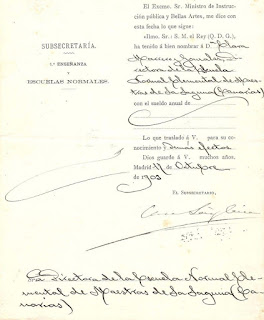 SUBSECRETARÍA.
1.ª ENSEÑANZA
Y
ESCUELAS NORMALES.
El Excmo. Sr. Ministro de Instruc-
ción pública y Bellas Artes, me dice con
esta fecha lo que sigue:
«Ilmo. Sr.: S. M. el Rey (Q. D. G.),
ha tenido á bien nombrar á D.ª Clara
Marcos González,
Directora de la Escuela
Normal Elemental de Maes-
tras de La Laguna (Canarias)
con el sueldo anual de
Lo que traslado á V. para su co-
nocimiento y demás efectos.
Dios guarde á V. muchos años.
Madrid de Octubre
de 1903
EL SUBSECRETARIO,
Sra. Directora de la Escuela Normal Ele-
mental de Maestras de La Laguna (Ca-
narias)